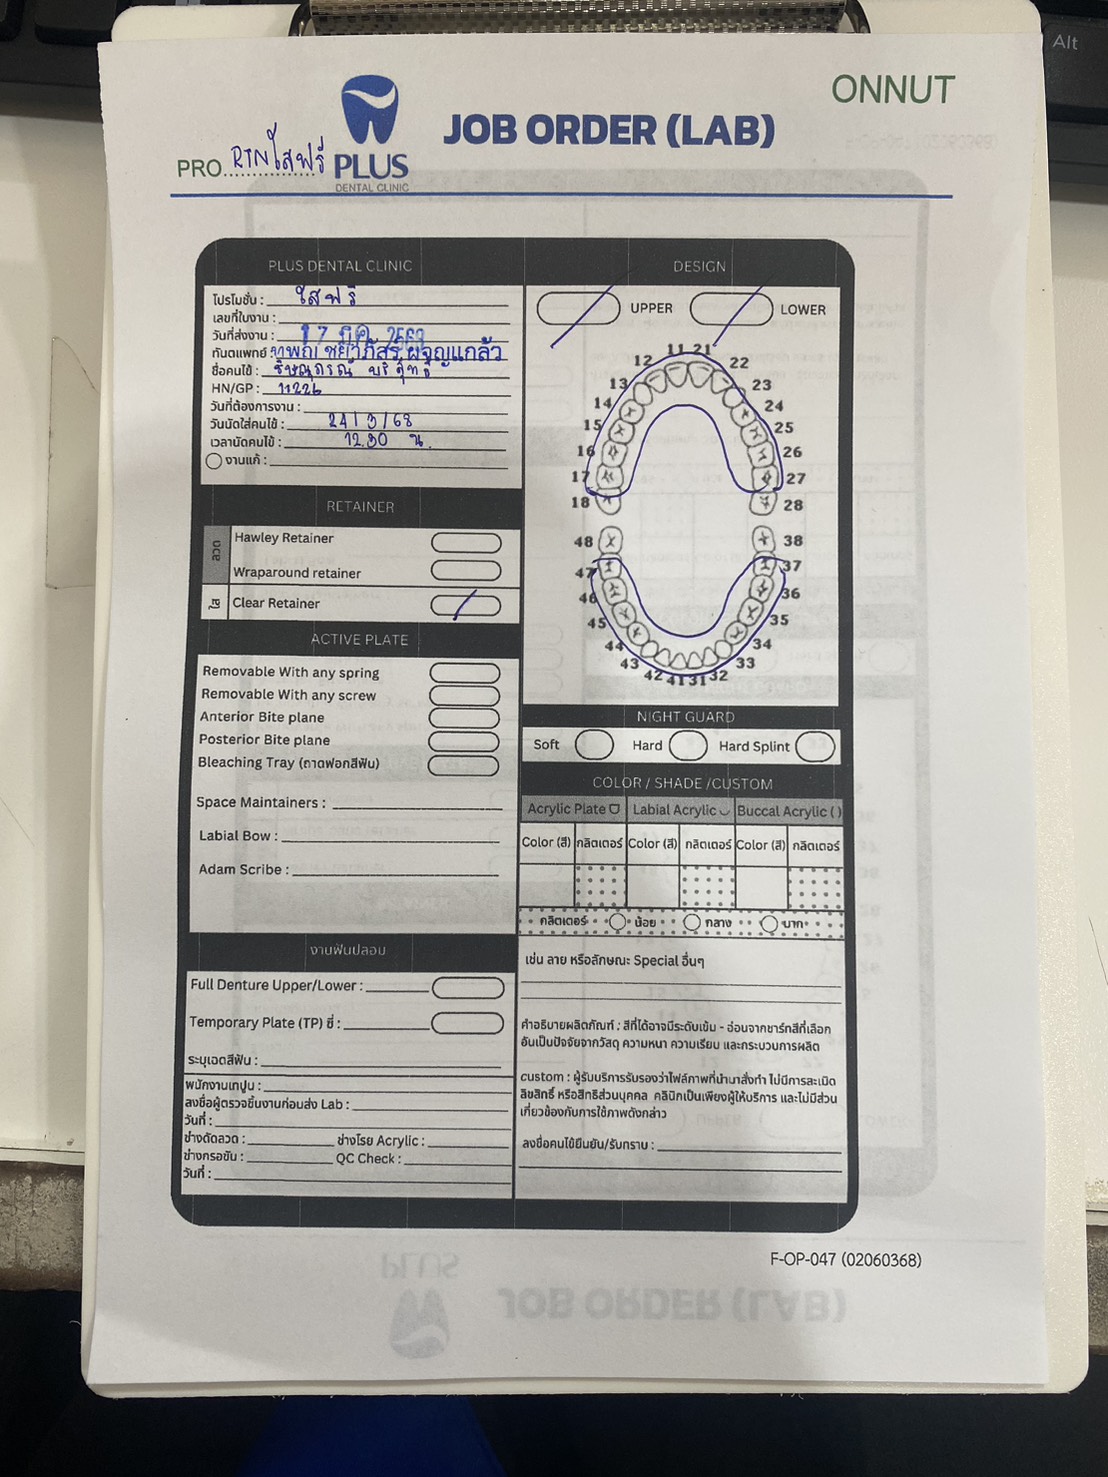 Alt
ONNUT
JOB ORDER (LAB)
PRO RTNใสฟรี
PLUS
DENTAL CLINIC
PLUS DENTAL CLINIC
โปรโมชั่น : ใสฟรี
เลขที่ใบงาน :
วันที่ส่งงาน : 17 มี.ค. 256
ทันตแพทย์ ทพญ. ชยาภัสร์ ผจญแกล้ว
ชื่อคนไข้ :
HN/GP : 11226
วันที่ต้องการงาน :
วันนัดใส่คนไข้ : 24/3/68
เวลานัดคนไข้ : 12.30 น.
งานแก้ :
RETAINER
ลวด
Hawley Retainer
Wraparound retainer
ใส
Clear Retainer
ACTIVE PLATE
Removable With any spring
Removable With any screw
Anterior Bite plane
Posterior Bite plane
Bleaching Tray (ถาดฟอกสีฟัน)
Space Maintainers :
Labial Bow :
Adam Scribe :
งานฟันปลอม
Full Denture Upper/Lower :
Temporary Plate (TP) ซี่ :
ระบุเฉดสีฟัน :
พนักงานเทปูน :
ลงชื่อผู้ตรวจชิ้นงานก่อนส่ง Lab :
วันที่ :
ช่างดัดลวด : ช่างโรย Acrylic :
ช่างกรอขัน : QC Check :
วันที่ :
DESIGN
UPPER LOWER
11 21
12 22
13 23
14 24
15 25
16 26
17 27
18 28
48 38
47 37
46 36
45 35
44 34
43 33
42 41 31 32
NIGHT GUARD
Soft Hard Hard Splint
COLOR / SHADE /CUSTOM
Acrylic Plate Labial Acrylic Buccal Acrylic ( )
Color (สี) กลิตเตอร์ Color (สี) กลิตเตอร์ Color (สี) กลิตเตอร์
กลิตเตอร์ น้อย กลาง มาก
เช่น ลาย หรือลักษณะ Special อื่นๆ
คำอธิบายผลิตภัณฑ์ : สีที่ได้อาจมีระดับเข้ม - อ่อนจากชาร์ทสีที่เลือก
อันเป็นปัจจัยจากวัสดุ ความหนา ความเรียบ และกระบวนการผลิต
custom : ผู้รับบริการรับรองว่าไฟล์ภาพที่นำมาสั่งทำ ไม่มีการละเมิด
ลิขสิทธิ์ หรือสิทธิส่วนบุคคล คลินิกเป็นเพียงผู้ให้บริการ และไม่มีส่วน
เกี่ยวข้องกับการใช้ภาพดังกล่าว
ลงชื่อคนไข้ยืนยัน/รับทราบ :
F-OP-047 (02060368)